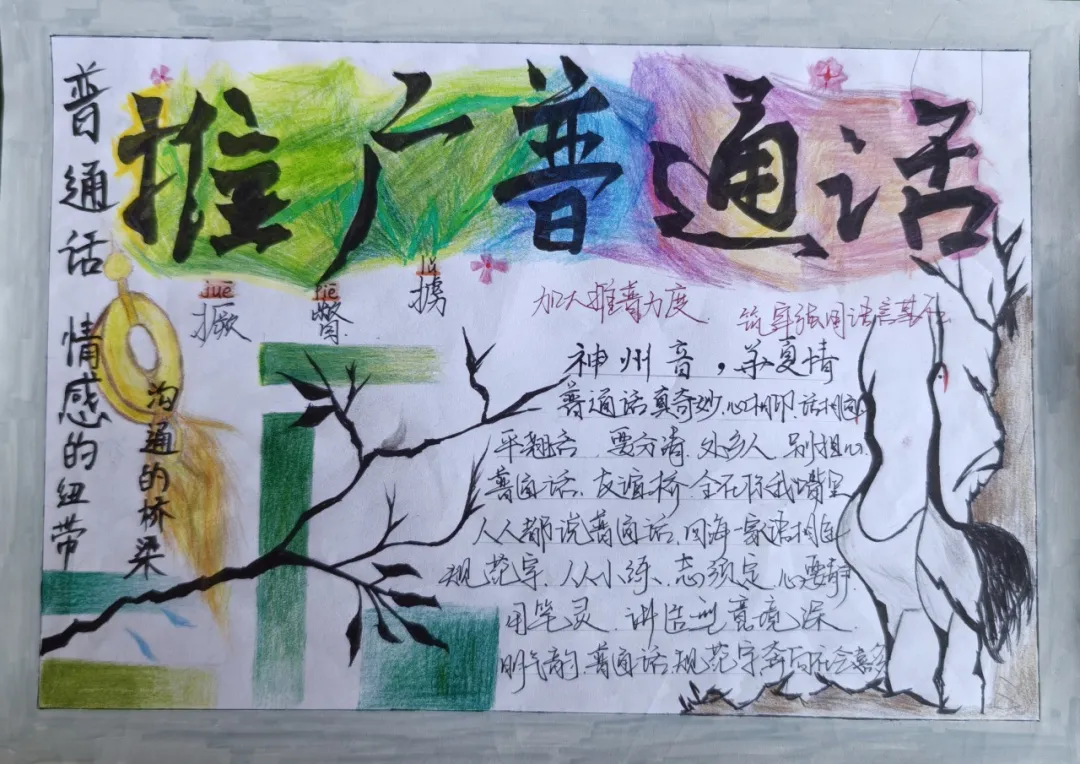 推广普通话
普通话 情感的纽带
沟通的桥梁
juē
撅
lǔ
掳
加大推普力度 筑牢强国语言基石
神州音，华夏情
普通话真奇妙.心相印.话相同
平翘舌.要分清.处乡人.别担心.
普通话.友谊桥.全在你我嘴里
人人都说普通话.四海一家语相通
规范字.从小练.志须定.心要静
用笔灵.讲法 意境深
明气韵.普通话.规范字